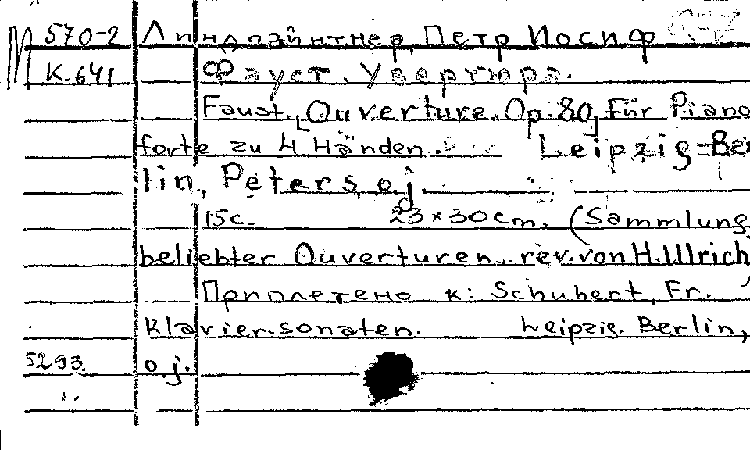 570-2 Линдпайнтнер, Петр Иосиф
К-641 Фауст. Увертюра.
Faust. [Ouverture. Op. 80] für Piano
forte zu 4 Händen. Leipzig-Ber
lin, Peters, o.j.
15c. 23×30cm. (Sammlung
beliebter Ouverturen, rev. von H. Ulrich
Приплетено к: Schubert, Fr.
Klaviersonaten. Leipzig. Berlin,
5293 o.j.